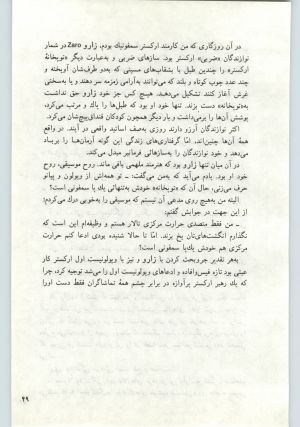 در آن روزگاری که من کارمند ارکستر سمفونیك بودم، زارو Zaro در شمار
نوازندگان «ضربی» ارکستر بود. سازهای ضربی و به‌عبارت دیگر «توپخانهٔ
ارکستر» را چندین طبل با بشقاب‌های مسینی که به‌دو طرف‌شان آویخته و
چند عدد چوب کوتاه و بلند که می‌توانند به‌آرامی زمزمه سر دهند و یا به‌سختی
غرش آغاز کنند تشکیل می‌دهند. هیچ کس جز خود زارو حق نداشت
به‌«توپخانه» دست بزند. تنها خود او بود که طبل‌ها را پاك و مرتب می‌کرد،
پوشش آن‌ها را برمی‌داشت و بار دیگر همچون کودکان قنداق‌پیچ‌شان می‌کرد.
اکثر نوازندگان آرزو دارند روزی به‌صف اساتید واقعی در آیند. در واقع
همهٔ آن‌ها چنین‌اند، امّا گرفتاری‌های زندگی این گونه آرمان‌ها را برباد
می‌دهد و خود نوازندگان را به‌سازهائی فرمانبر مبدل می‌کند.
زارو تنها نوازنده‌ئی بود که هنرمند ملهمی باقی ماند. روح موسیقی، روح
خود او بود. یادم می‌آید که به‌من می‌گفت: ـ تو همه‌اش از ویولون و پیانو
حرف می‌زنی، حال آن که «توپخانه» خودش به‌تنهائی یك پا سمفونی است؟
البته من به‌هیچ روی مدعی آن نیستم که موسیقی را به‌خوبی درك می‌کردم؛
از این جهت در جوابش گفتم:
ـ من فقط متصدی حرارت مرکزی تالار هستم و وظیفه‌ام این است که
نگذارم انگشت‌های‌تان یخ بزند. امّا تا حالا شنیده بودی ادعا کنم حرارت
مرکزی هم خودش یك‌پا سمفونی است؟
به‌هر تقدیر جروبحث کردن با زارو و نیز با ویولونیست اول ارکستر کار
عبثی بود تازه فیس‌وافاده و ادعاهای ویولونیست اول را می‌شد توجیه کرد، چرا
که یك رهبر ارکستر پرآوازه در برابر چشم همهٔ تماشاگران فقط دست اورا
۴۹